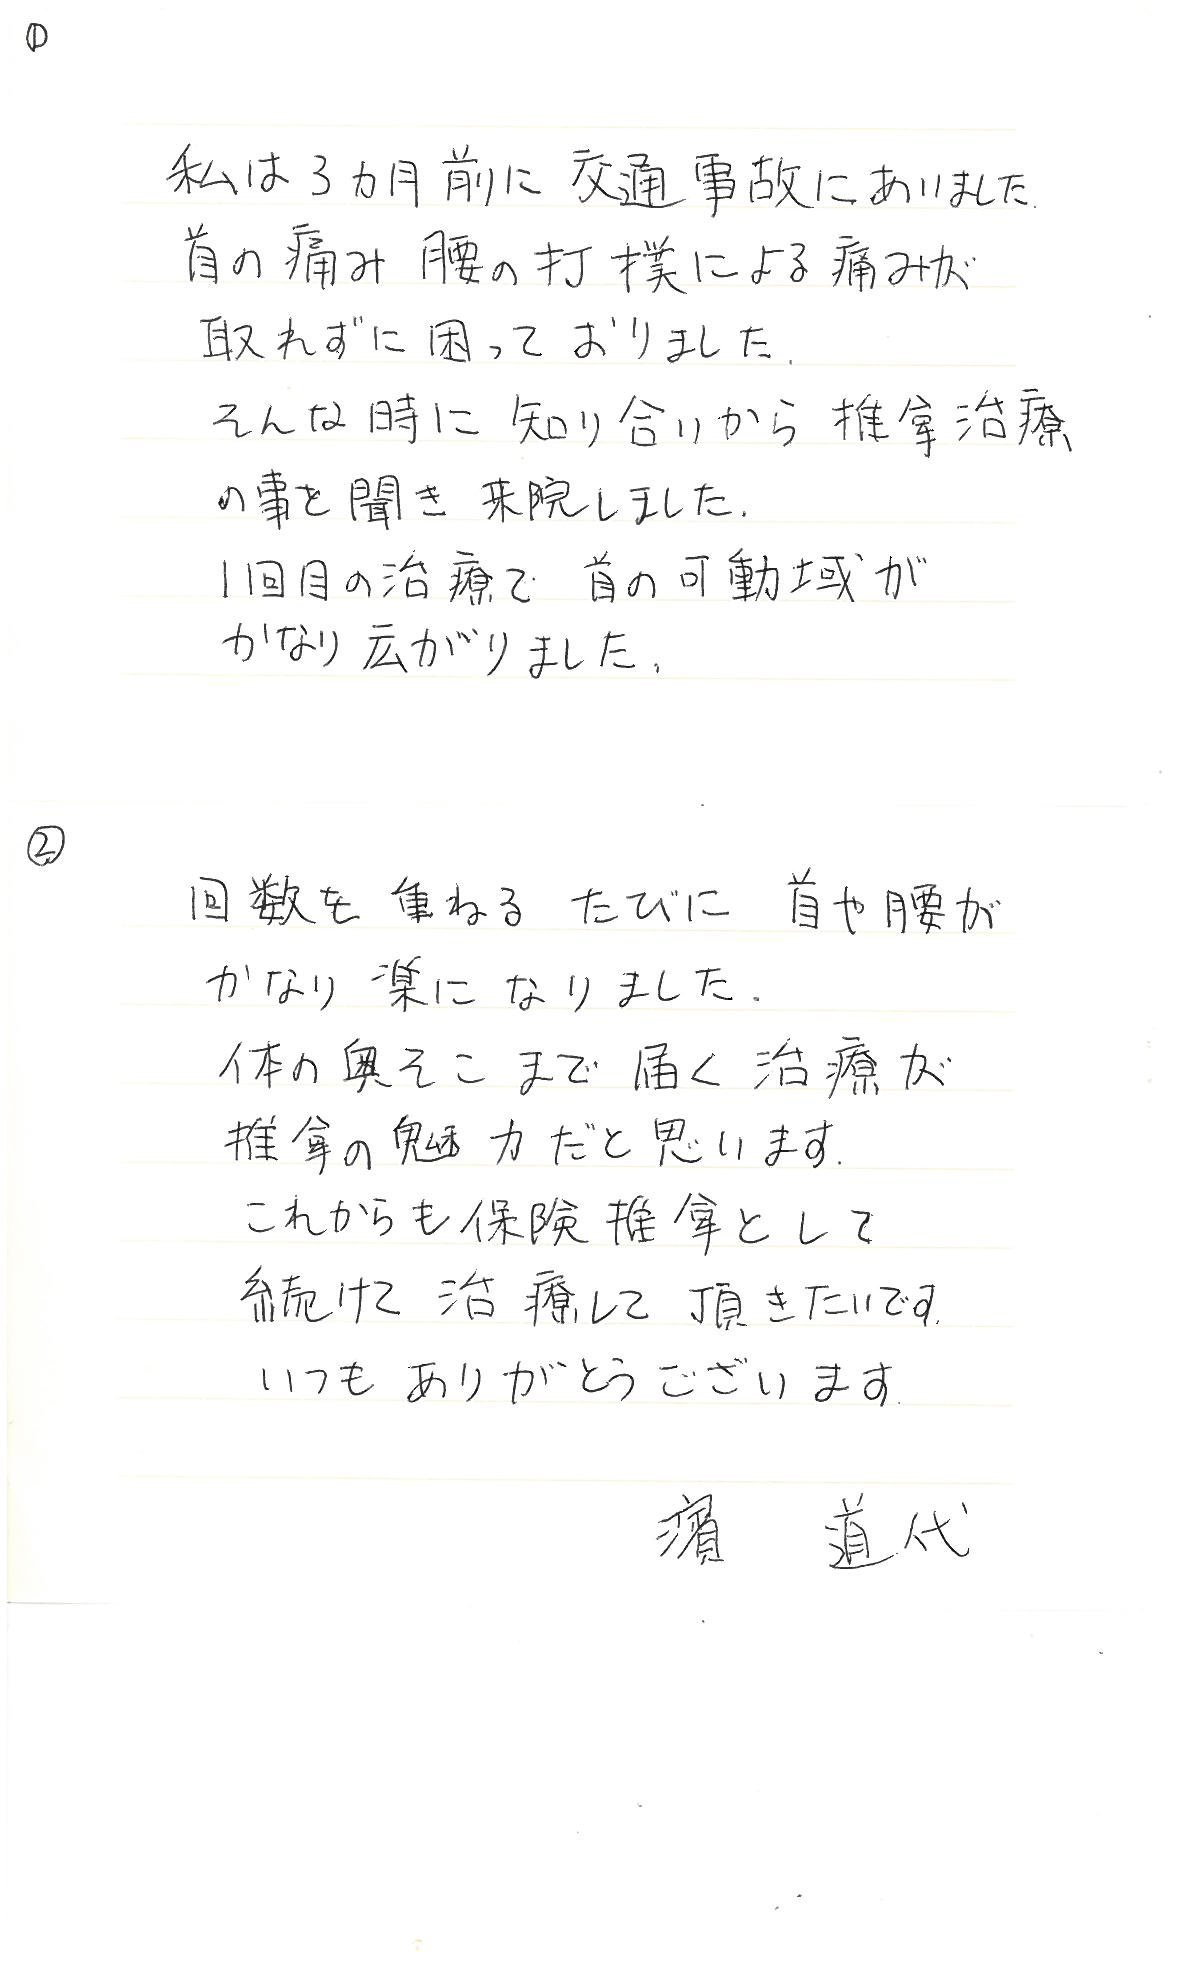 ①
私は3カ月前に 交通事故にあいました.
首の痛み 腰の打撲による痛みが
取れずに困っておりました.
そんな時に知り合いから推拿治療
の事を聞き来院しました.
1回目の治療で 首の可動域が
かなり広がりました.
②
回数を重ねる たびに 首や腰が
かなり楽になりました.
体の奥そこまで届く治療が
推拿の魅力だと思います.
これからも保険推拿として
続けて治療して頂きたいです.
いつもありがとうございます.
濱 道代